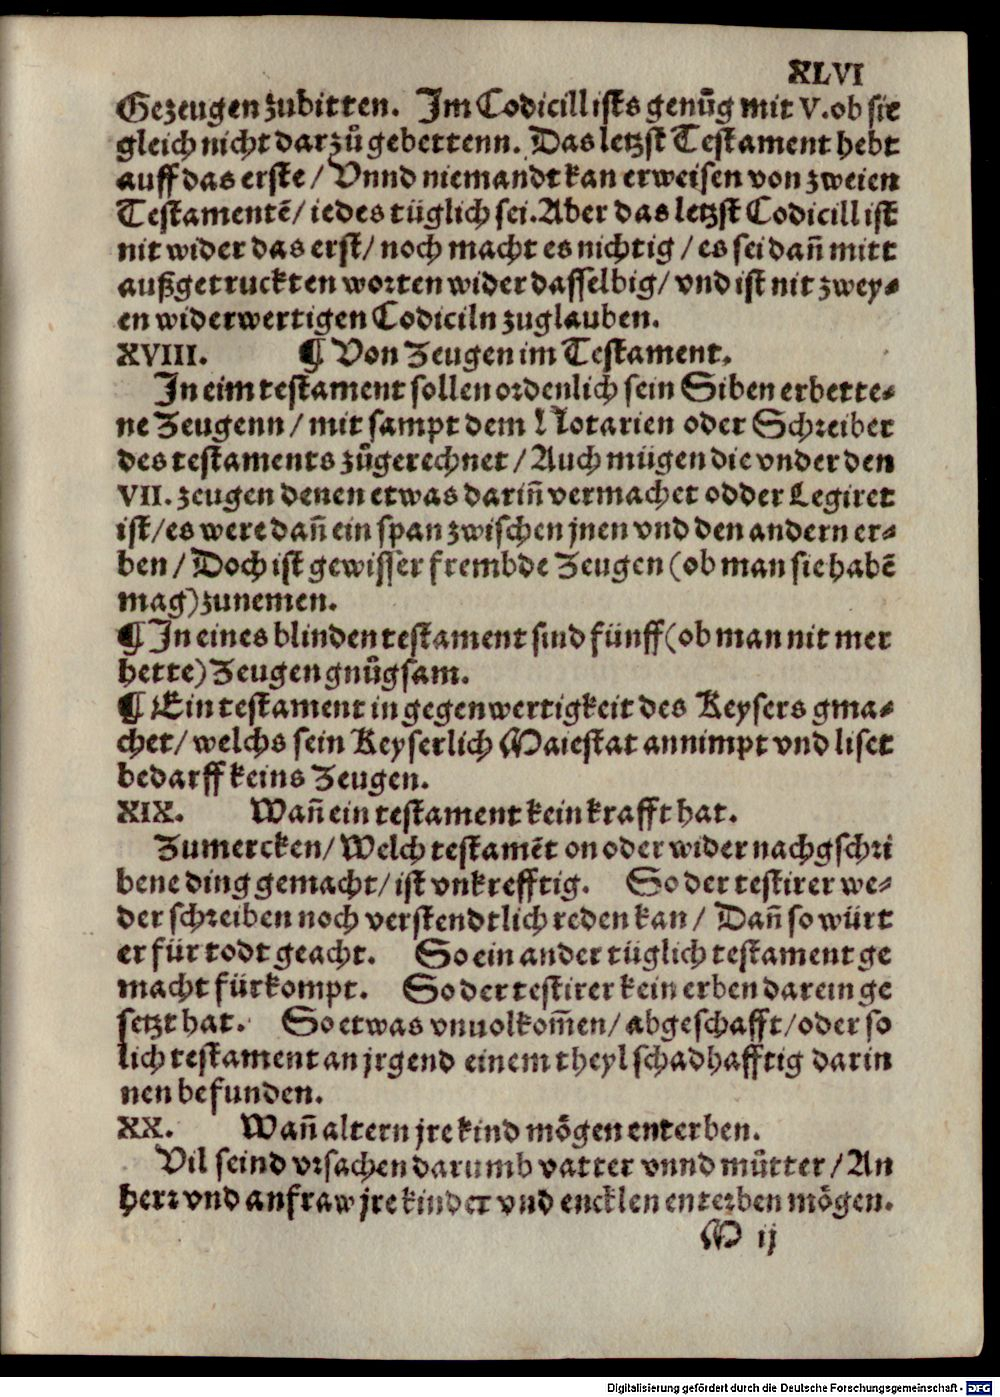 XLVI
Gezeugen zubitten. Im Codicill ists genůg mit V. ob sie
gleich nicht darzů gebettenn. Das letzst Testament hebt
auff das erste / Vnnd niemandt kan erweisen von zweien
Testamentē / iedes tüglich sei. Aber das letzst Codicill ist
nit wider das erst / noch macht es nichtig / es sei dañ mitt
außgetruckten worten wider dasselbig / vnd ist nit zwey⸗
en widerwertigen Codiciln zuglauben.
XVIII. ¶ Von Zeugen im Testament.
In eim testament sollen ordenlich sein Siben erbette⸗
ne Zeugenn / mit sampt dem Notarien oder Schreiber
des testaments zůgerechnet / Auch mügen die vnder den
VII. zeugen denen etwas dariñ vermachet odder Legiret
ist / es were dañ ein span zwischen jnen vnd den andern er⸗
ben / Doch ist gewisser frembde Zeugen (ob man sie habē
mag) zunemen.
¶ In eines blinden testament sind fünff (ob man nit mer
hette) Zeugen gnůgsam.
¶ Ein testament in gegenwertigkeit des Keysers gma⸗
chet / welchs sein Keyserlich Maiestat annimpt vnd liset
bedarff keins Zeugen.
XIX. Wañ ein testament kein krafft hat.
Zumercken / Welch testamēt on oder wider nachgschri
bene ding gemacht / ist vnkrefftig. So der testirer we⸗
der schreiben noch verstendtlich reden kan / Dañ so würt
er für todt geacht. So ein ander tüglich testament ge
macht fürkompt. So der testirer kein erben darein ge
setzt hat. So etwas vnuolkom̄en / abgeschafft / oder so
lich testament an jrgend einem theyl schadhafftig darin
nen befunden.
XX. Wañ altern jre kind mögen enterben.
Vil seind vrsachen darumb vatter vnnd můtter / An
herr vnd anfraw jre kinder vnd encklen enterben mögen.
M ij
Digitalisierung gefördert durch die Deutsche Forschungsgemeinschaft - DFG